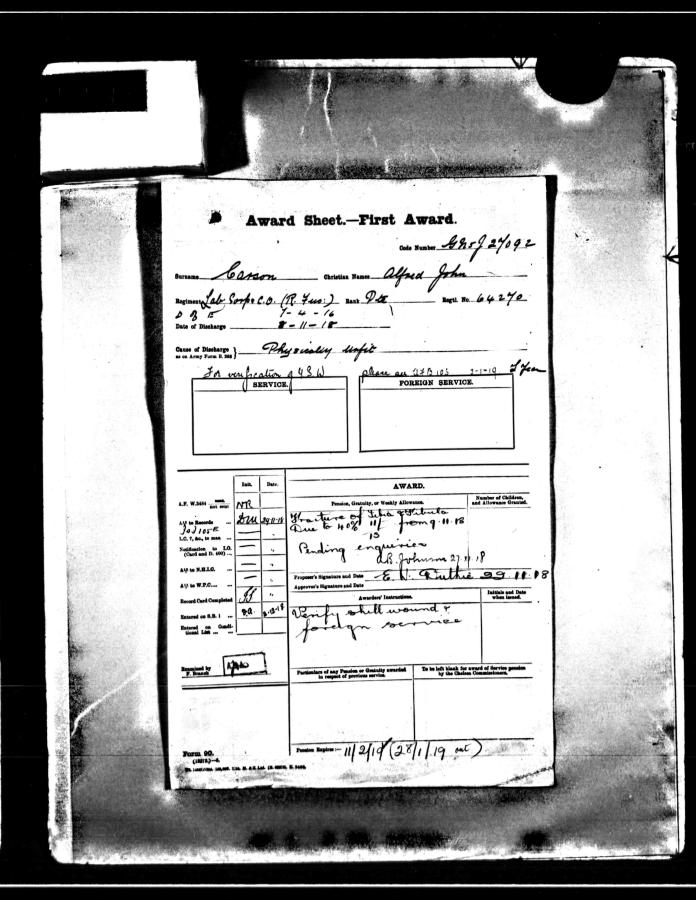 Award Sheet.—First Award.
Code Number 27092
Surname Carson Christian Names Alfred John
Regiment Lab Corps C.O. (R. Fus:) Rank Pte Regtl. No. 64270
D of E 7-4-16
Date of Discharge 8-11-18
Cause of Discharge as on Army Form B. Physically unfit
For verification of G.S.W please see A.F.B 103 2-1-19
SERVICE. FOREIGN SERVICE.
Init. Date. AWARD.
A.F. W.3484 sent. not sent NR
Pension, Gratuity, or Weekly Allowance. Number of Children, and Allowance Granted.
A/J to Records 29-11-18 Fracture of Tibia & Fibula
Due to 40% 11/- from 9.11.18
I.C. 7, &c., to man
Notification to I.O. (Card and D. 400) Pending enquiries
Johnson 27.11.18
A/J to N.H.I.C.
Proposer's Signature and Date 29.11.18
A/J to W.P.C. Approver's Signature and Date
Record Card Completed Awarders' Instructions. Initials and Date when issued.
Entered on S.B. 1 Verify shell wound &
foreign service
Entered on Conditional List
Examined by F. Branch
Particulars of any Pension or Gratuity awarded in respect of previous service. To be left blank for award of Service pension by the Chelsea Commissioners.
Form 90. Pension Expires:— 11/2/19 (28/1/19)